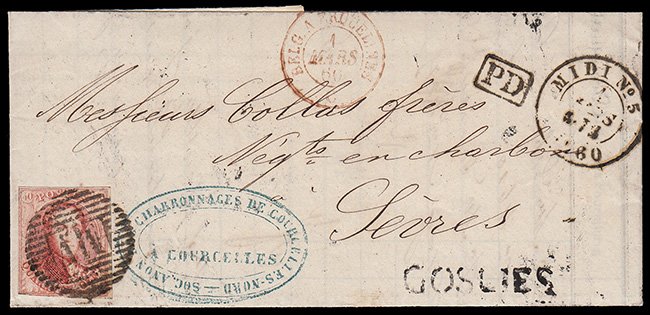 BELG. A
1
MARS
60
PD
MIDI Nº 5
1
MARS
60
Messieurs Collas frères
Négts en charbon
Sèvres
CHARBONNAGES DE COURCELLES-NORD
A COURCELLES
SOC. ANON
GOSLIES